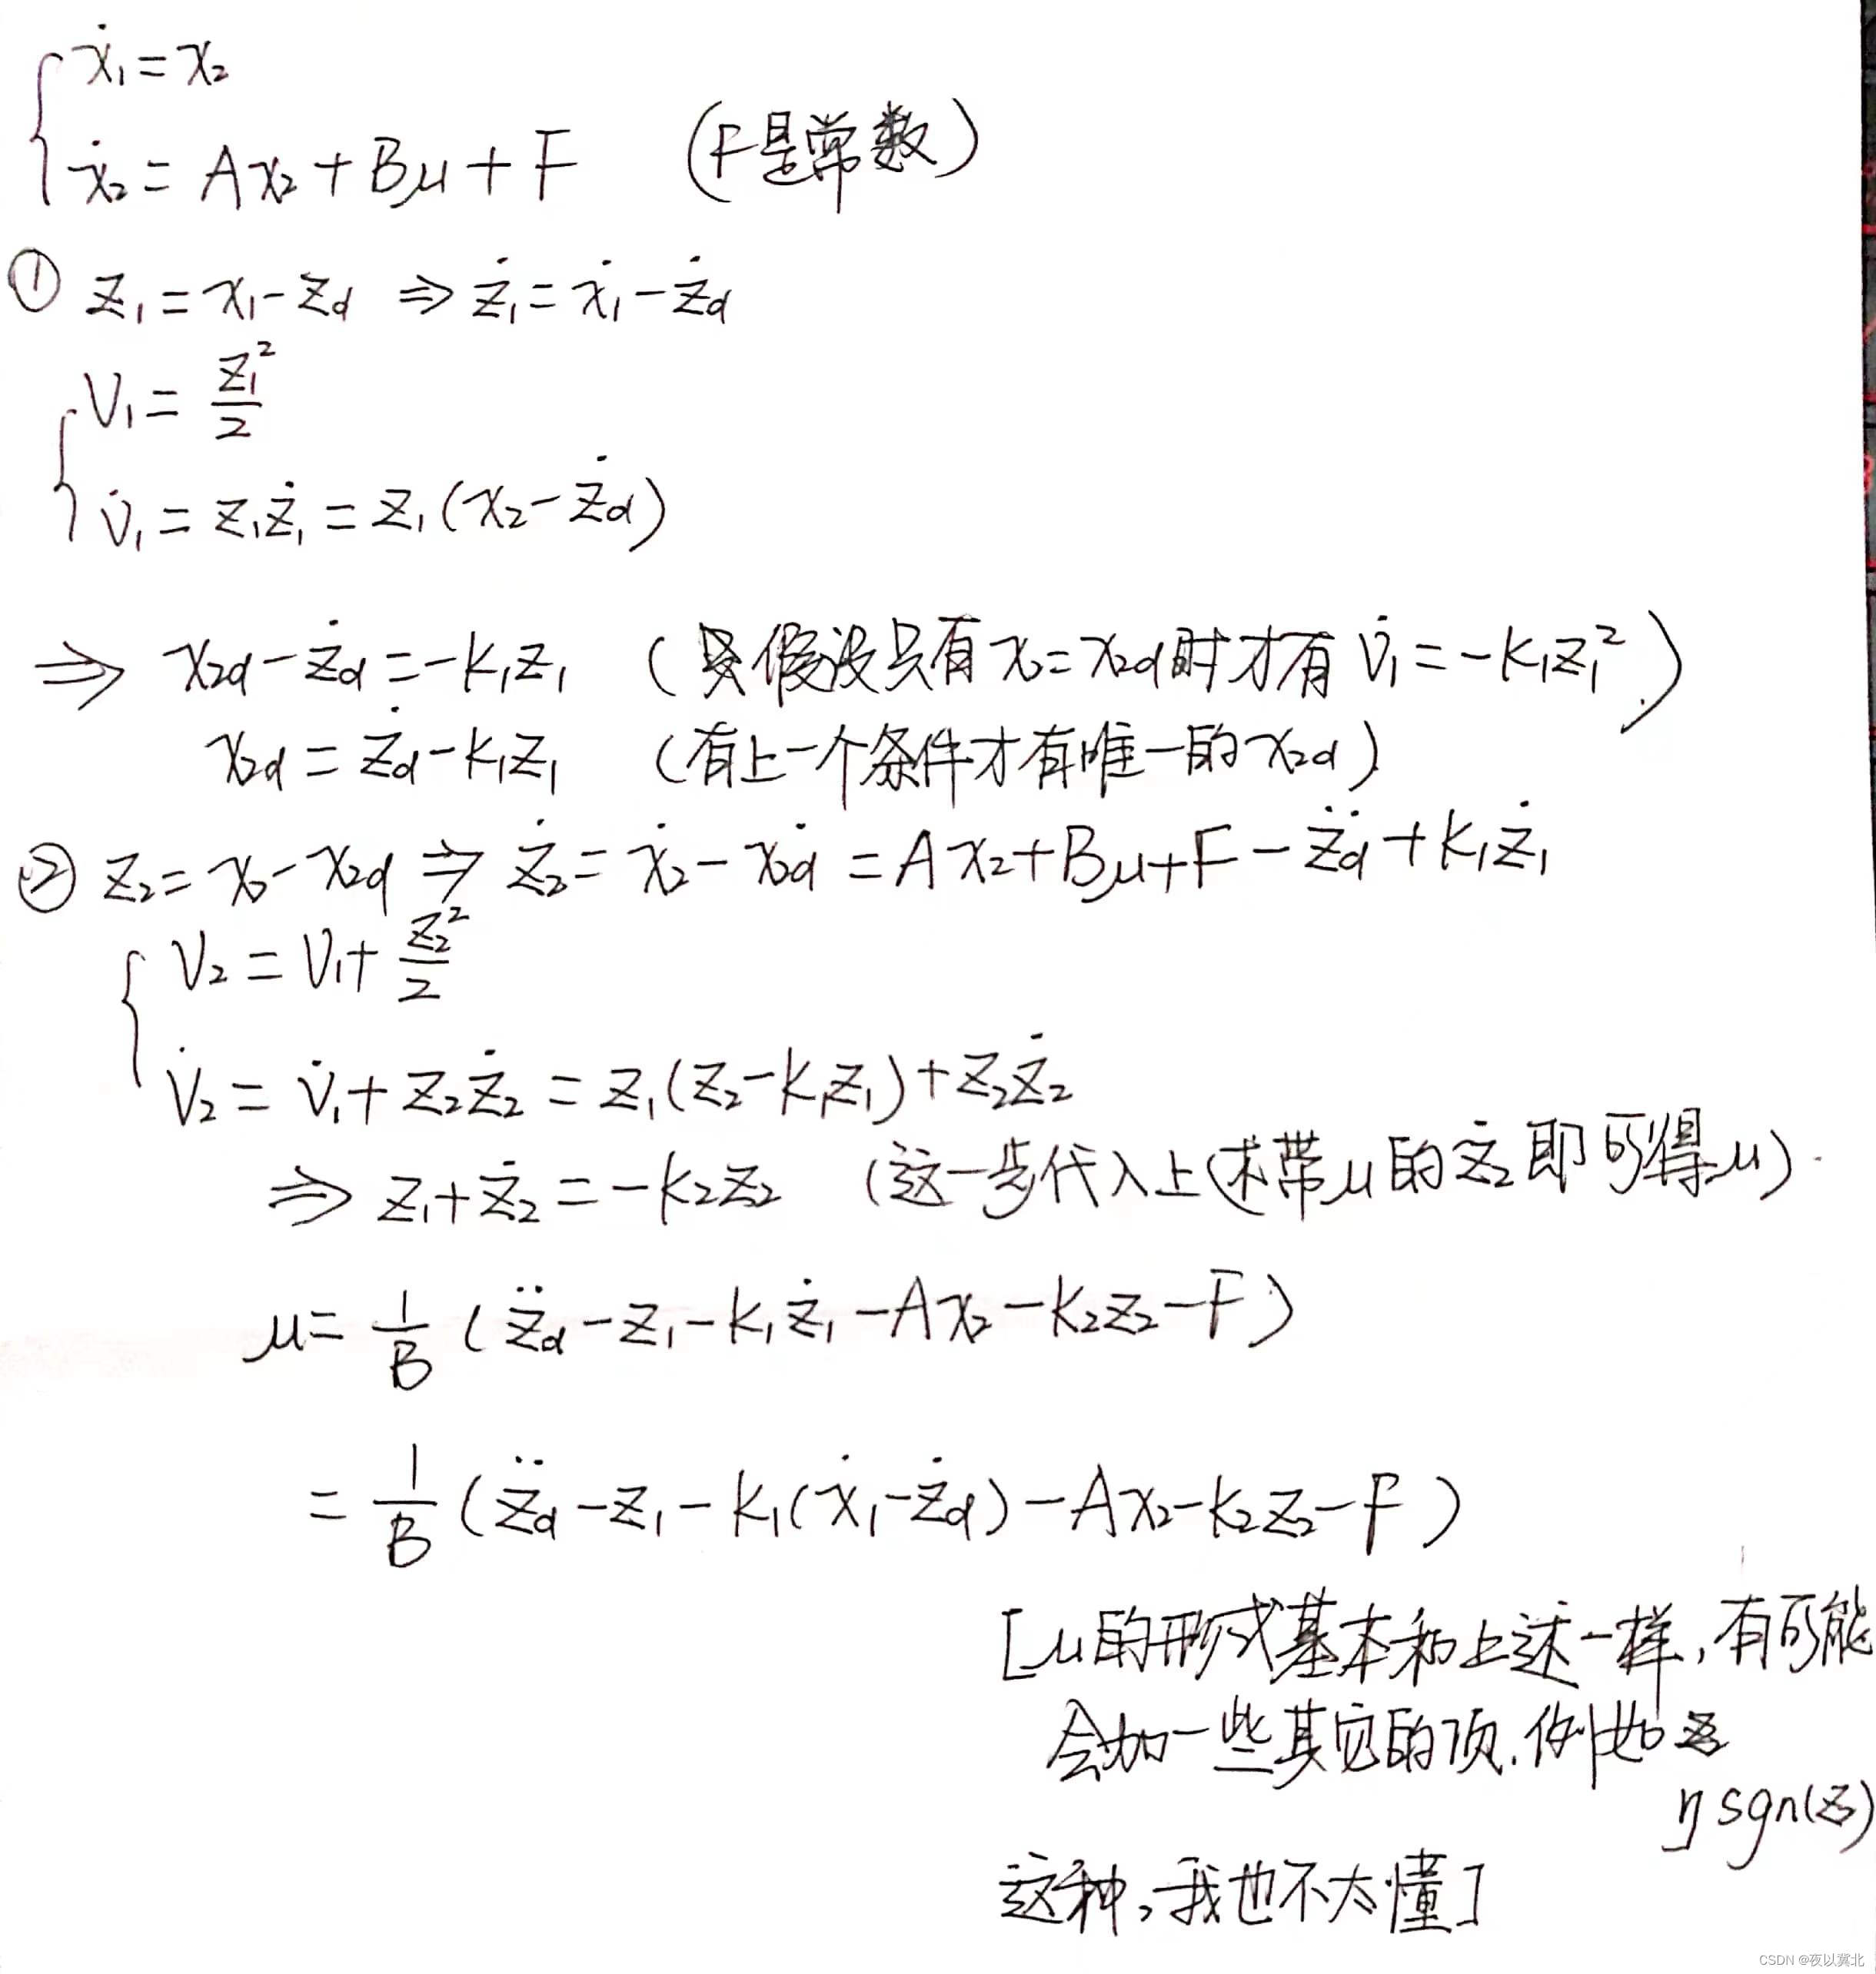 ẋ₁ = x₂
ẋ₂ = Ax₂ + Bμ + F （F是常数）
① z₁ = x₁ - z_d ⇒ ż₁ = ẋ₁ - ż_d
V₁ = z₁²/2
V̇₁ = z₁ż₁ = z₁(x₂ - ż_d)
⇒ x₂d - ż_d = -k₁z₁ （假设只有x₂=x₂d时才有 V̇₁ = -k₁z₁²）
x₂d = ż_d - k₁z₁ （有上一个条件才有唯一的x₂d）
② z₂ = x₂ - x₂d ⇒ ż₂ = ẋ₂ - ẋ₂d = Ax₂ + Bμ + F - z̈_d + k₁ż₁
V₂ = V₁ + z₂²/2
V̇₂ = V̇₁ + z₂ż₂ = z₁(z₂ - k₁z₁) + z₂ż₂
⇒ z₁ + ż₂ = -k₂z₂ （这一步代入上述带μ的ż₂即可得μ）.
μ = 1/B (z̈_d - z₁ - k₁ż₁ - Ax₂ - k₂z₂ - F)
= 1/B (z̈_d - z₁ - k₁(ẋ₁ - ż_d) - Ax₂ - k₂z₂ - F)
[μ的形式基本和上述一样，有可能
会加一些其它的项，例如
η sgn(z)
这种，我也不太懂]
CSDN @夜以冀北